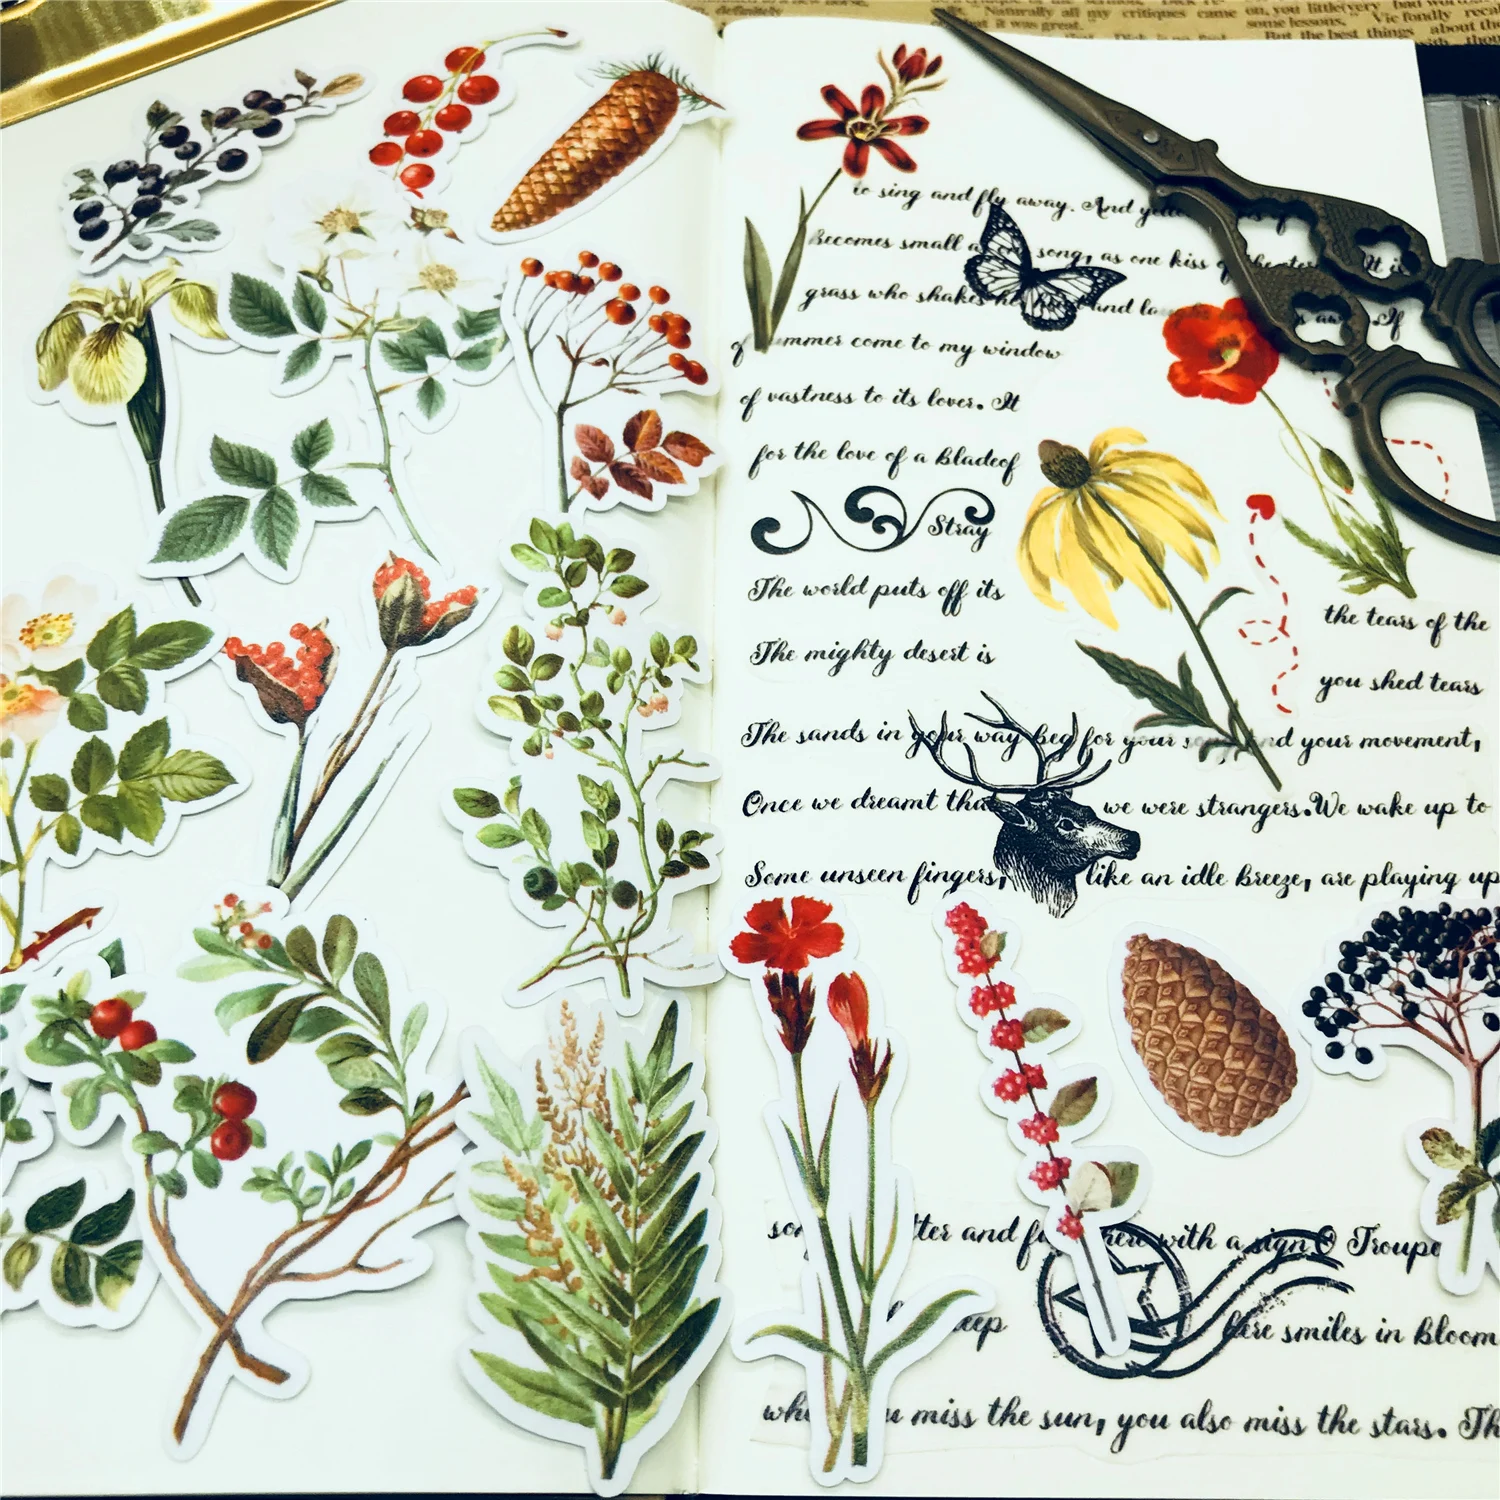 definitely
Naturally all my critiques came on, you little
some lessons.
it was great."
Vie fondly
But the best things about
to sing and fly away. And
Becomes small a song, as one kiss of
It is
grass who shakes and
If
mmer come to my window
of vastness to its lover. It
for the love of a Bladeof
Stray
The world puts off its
the tears of the
The mighty desert is
you shed tears
The sands in your way beg for your and your movement,
Once we dreamt tha we were strangers.We wake up to
Some unseen fingers, like an idle Breeze, are playing up
tter and here with a sign.O Troupe
smiles in Bloom
miss the sun, you also miss the stars. Th